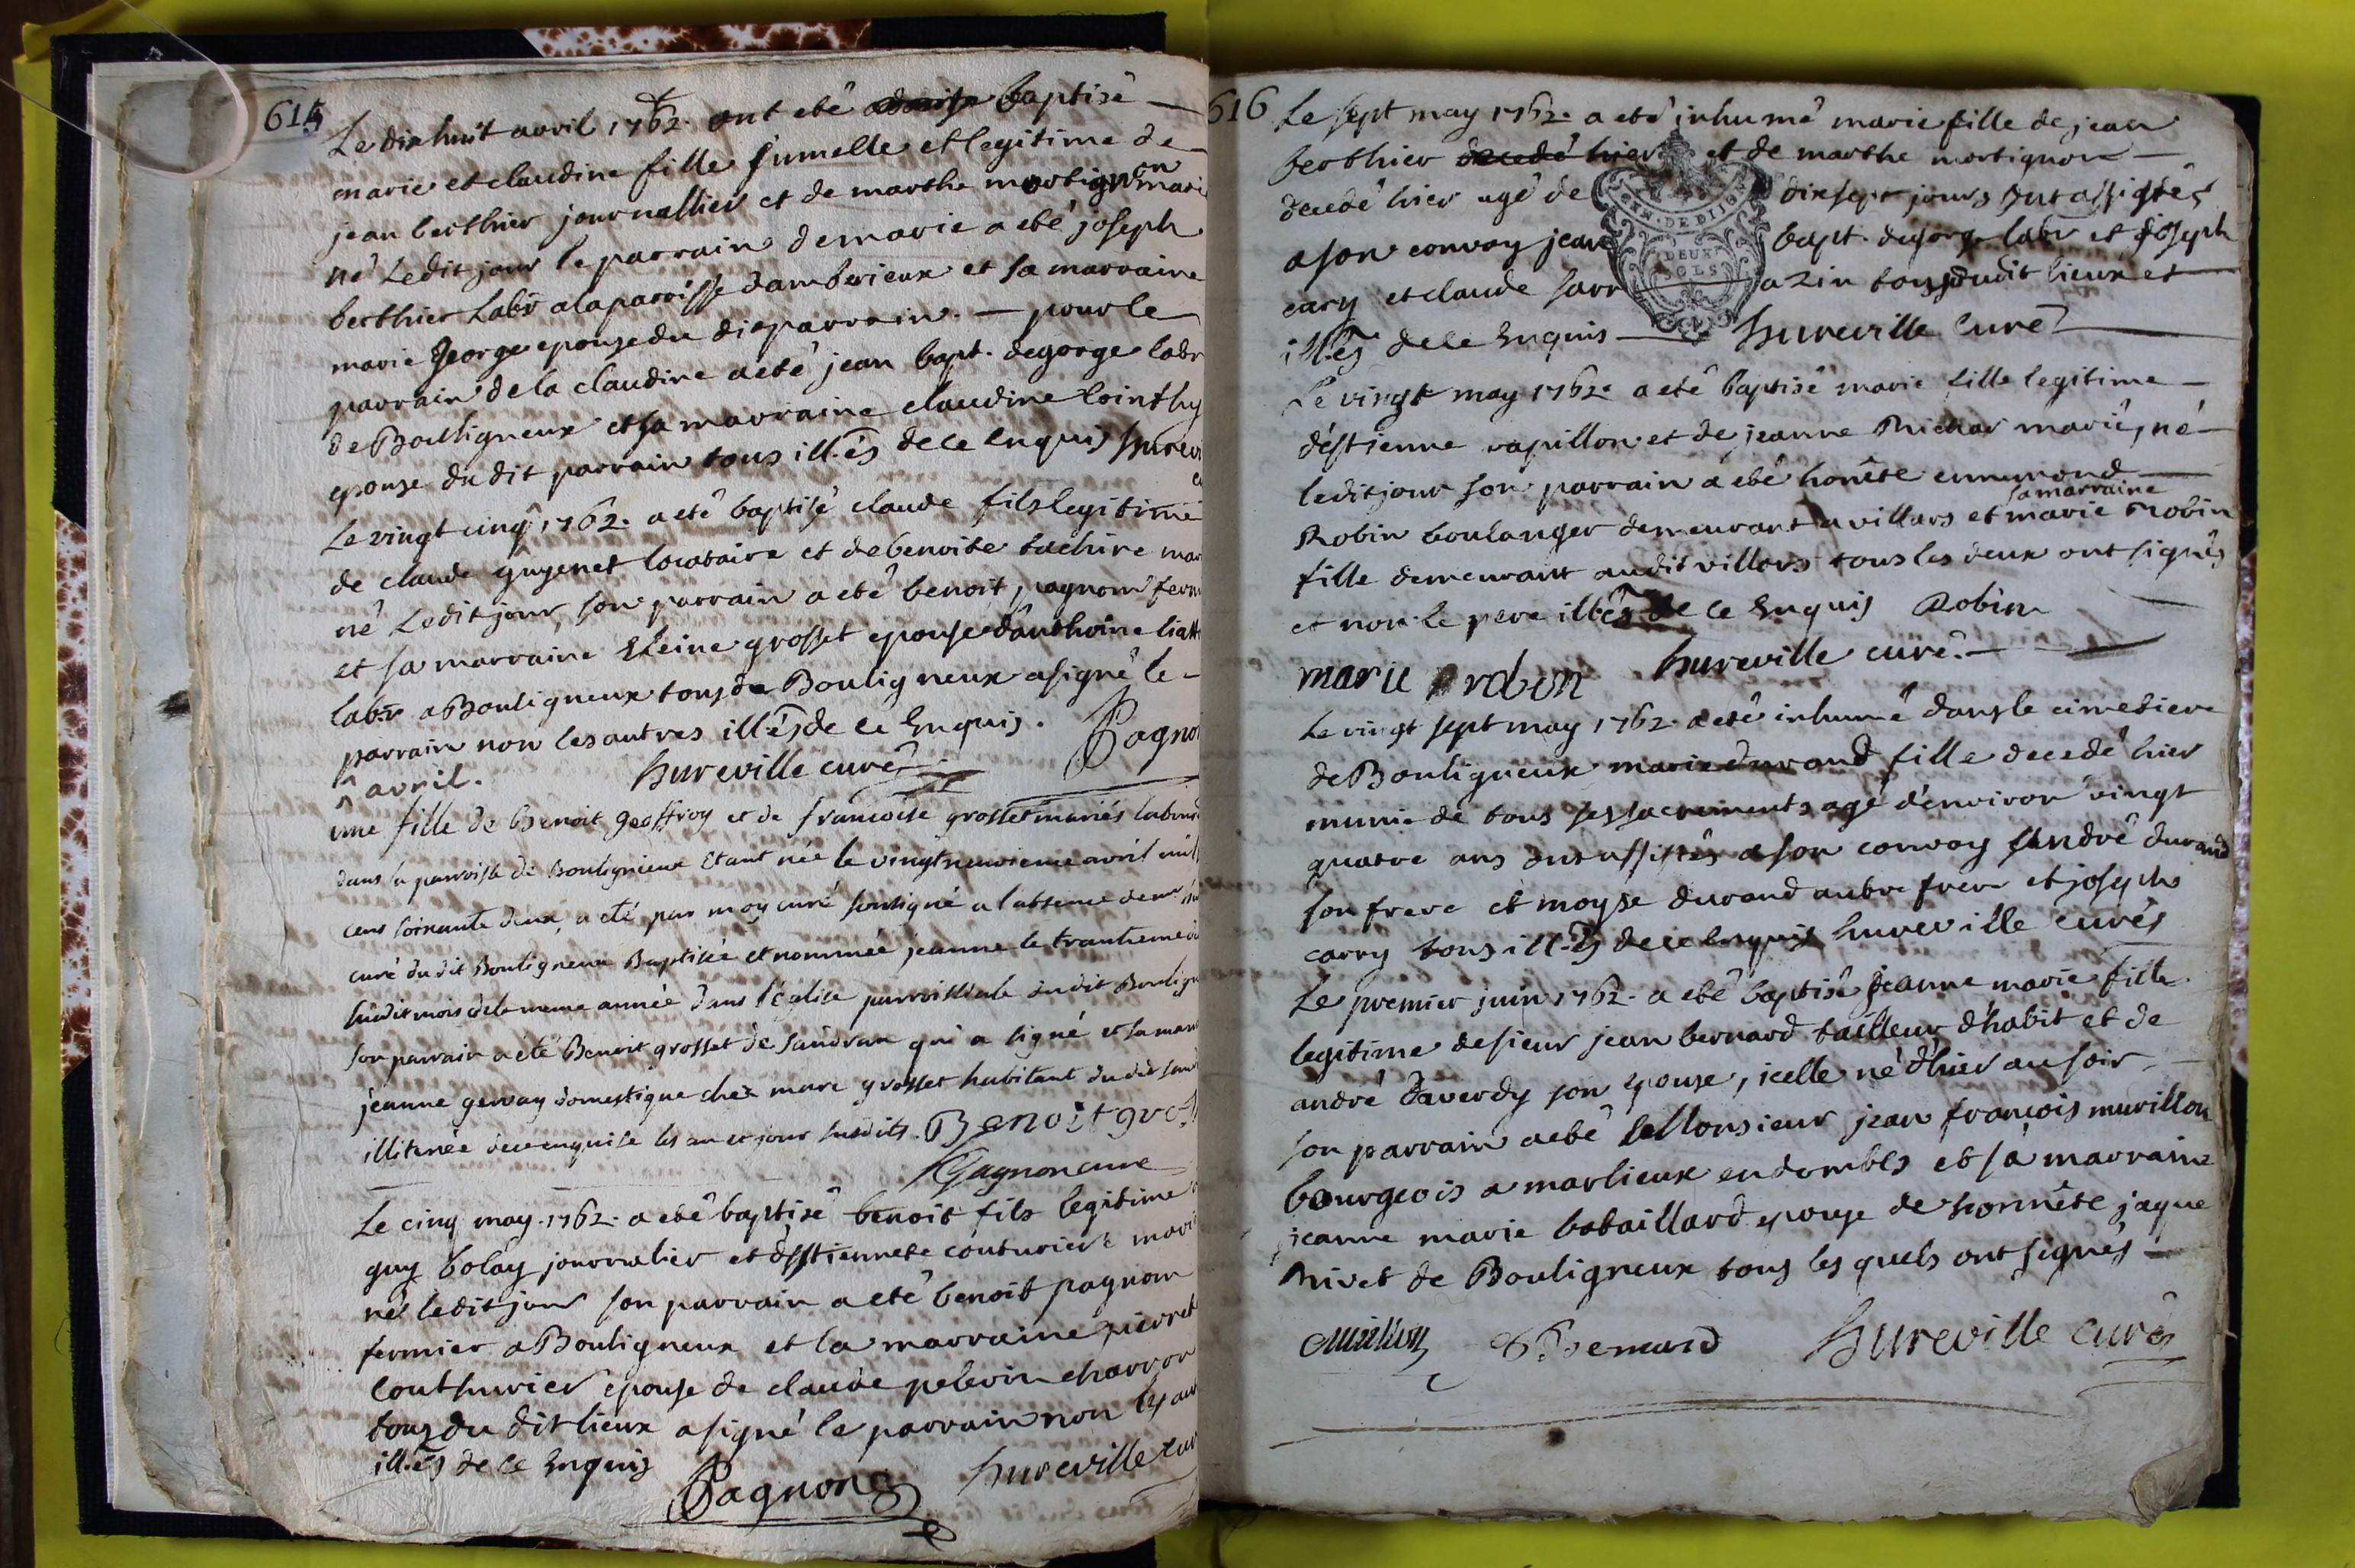 615
Le dix huit avril 1762. ont eté baptisé
marie et claudine fille jumelle et legitime de
jean berthier journallier et de marthe mortignon
né Ledit jour le parrain de marie a eté joseph
berthier Labr a la parroisse damberieux et sa marraine
marie george epouse du dit parrain. — pour le
parrain de la claudine a eté jean bapt. degorge labr
de Bouligneux et sa marraine claudine
epouse du dit parrain tous ill.és de ce Enquis
Le vingt cinq^ 1762. a eté baptisé claude fils legitime
de claude guyenet locataire et de benoite tachire
né Ledit jour, son parrain a eté benoit pagnon
et sa marraine grosset epouse
labr a Bouligneux tous de Bouligneux a signé le
parrain non les autres ill.és de ce Enquis. Pagnon
^ avril. hureville curé
une fille de benoit geoffroy et de francoise grosset mariés
dans la parroisse de Bouligneux etant née le vingt neuvieme avril
cens soixante deux, a eté par moy curé soussigné a l'absence de mr
curé du dit Bouligneux Baptisée et nommée jeanne le trantieme
susdit mois de la meme année dans l'église parroissiale du dit
son parrain a eté Benoit grosset de sandran qui a signé et sa
jeanne gervay domestique chez marc grosset habitant du dit
illiterée de ce enquise les an et jour susdits. Benoit
Gagnon cure
Le cinq may. 1762. a eté baptisé benoit fils legitime
guy bolay journalier et d'estiennete couturier
né ledit jour son parrain a eté benoit pagnon
fermier a Bouligneux et la marraine
couthurier epouse de claude pelerin charron
tous du dit lieux a signé le parrain non les
ill.és de ce Enquis Pagnon hureville
616
Le sept may 1762. a eté inhumé marie fille de jean
berthier decedé hier et de marthe mortignon
decedé hier agé de dix sept jours ont assistés
a son convoy jean bapt. degorge labr et joseph
cary et claude sarrazin tous dudit lieux et
ill.és de ce Enquis — hureville Curé
Le vingt may 1762. a eté baptisé marie fille legitime
d'estienne rapillon et de jeanne mariés, né
ledit jour son parrain a eté honête ennemond
sa marraine
Robin boulanger demeurant a villars et marie robin
fille demeurant audit villars tous les deux ont signés
et non le pere ill.és de ce Enquis Robin
marie robin hureville curé.
Le vingt sept may 1762. a eté inhumé dans le cimetiere
de Bouligneux marie durand fille decedé hier
munie de tous ses sacrements agé d'environ vingt
quatre ans ont assistés a son convoy andré durand
son frere et moyse durand autre frere et joseph
carry tous ill.és de ce Enquis hureville curés
Le premier juin 1762. a eté baptisé jeanne marie fille
legitime de sieur jean bernard tailleur d'habit et de
andré daverdy son epouse, icelle né d'hier au soir
son parrain a eté Monsieur jean françois murillon
bourgeois a marlieux en dombes et sa marraine
jeanne marie bataillard epouse de honnête jaque
nivet de Bouligneux tous les quels ont signés
bernard hureville curés